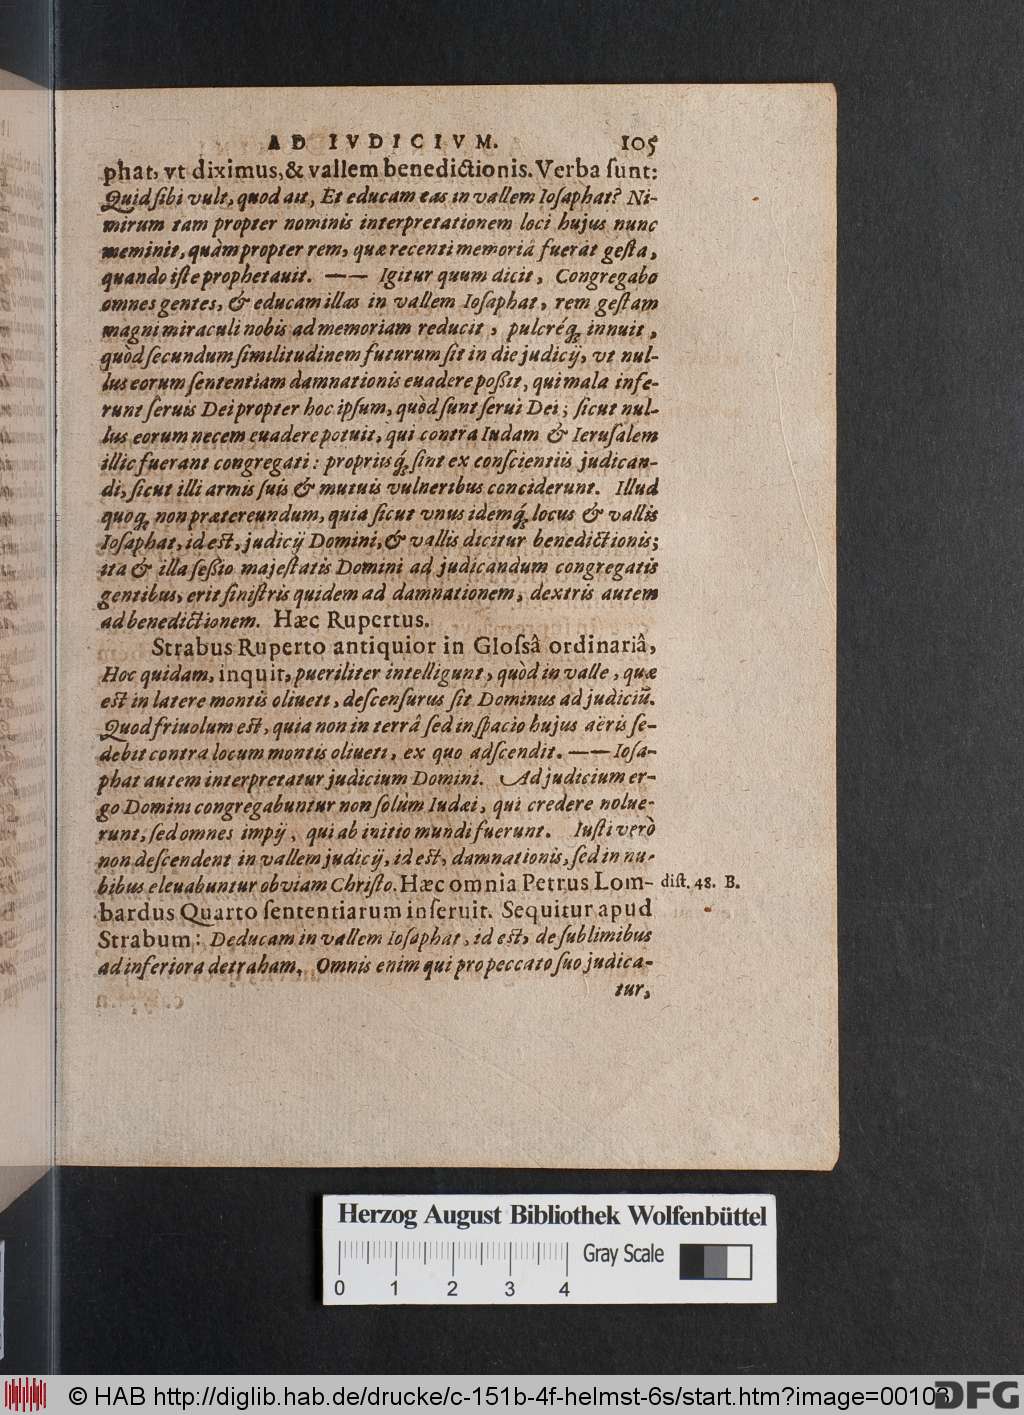 AD IVDICIVM. 105
phat, vt diximus, & vallem benedictionis. Verba ſunt:
Quid ſibi vult, quod ait, Et educam eas in vallem Ioſaphat? Ni-
mirum tam propter nominis interpretationem loci hujus nunc
meminit, quàm propter rem, quæ recenti memoriâ fuerat geſta,
quando iſte prophetauit. —— Igitur quum dicit, Congregabo
omnes gentes, & educam illas in vallem Ioſaphat, rem geſtam
magni miraculi nobis ad memoriam reducit, pulcréq; innuit,
quòd ſecundum ſimilitudinem futurum ſit in die judicij, vt nul-
lus eorum ſententiam damnationis euadere poßit, qui mala infe-
runt ſeruis Dei propter hoc ipſum, quòd ſunt ſerui Dei; ſicut nul-
lus eorum necem euadere potuit, qui contra Iudam & Ieruſalem
illic fuerant congregati: propriisq́; ſint ex conſcientiis judican-
di, ſicut illi armis ſuis & mutuis vulneribus conciderunt. Illud
quoq; non prætereundum, quia ſicut vnus idemq́; locus & vallis
Ioſaphat, id eſt, judicij Domini, & vallis dicitur benedictionis;
ita & illa ſeßio majeſtatis Domini ad judicandum congregatis
gentibus, erit ſiniſtris quidem ad damnationem, dextris autem
ad benedictionem. Hæc Rupertus.
Strabus Ruperto antiquior in Gloſsâ ordinariâ,
Hoc quidam, inquit, pueriliter intelligunt, quòd in valle, quæ
eſt in latere montis oliueti, deſcenſurus ſit Dominus ad judiciũ.
Quod friuolum eſt, quia non in terrâ ſed in ſpacio hujus aëris ſe-
debit contra locum montis oliueti, ex quo adſcendit. —— Ioſa-
phat autem interpretatur judicium Domini. Ad judicium er-
go Domini congregabuntur non ſolùm Iudæi, qui credere nolue-
runt, ſed omnes impij, qui ab initio mundi fuerunt. Iuſti verò
non deſcendent in vallem judicij, id eſt, damnationis, ſed in nu-
bibus eleuabuntur obviam Chriſto. Hæc omnia Petrus Lom- diſt. 48. B.
bardus Quarto ſententiarum inſeruit. Sequitur apud
Strabum: Deducam in vallem Ioſaphat, id eſt, de ſublimibus
ad inferiora detraham. Omnis enim qui pro peccato ſuo judica-
tur,
Herzog August Bibliothek Wolfenbüttel
Gray Scale
0 1 2 3 4
© HAB http://diglib.hab.de/drucke/c-151b-4f-helmst-6s/start.htm?image=00103
DFG